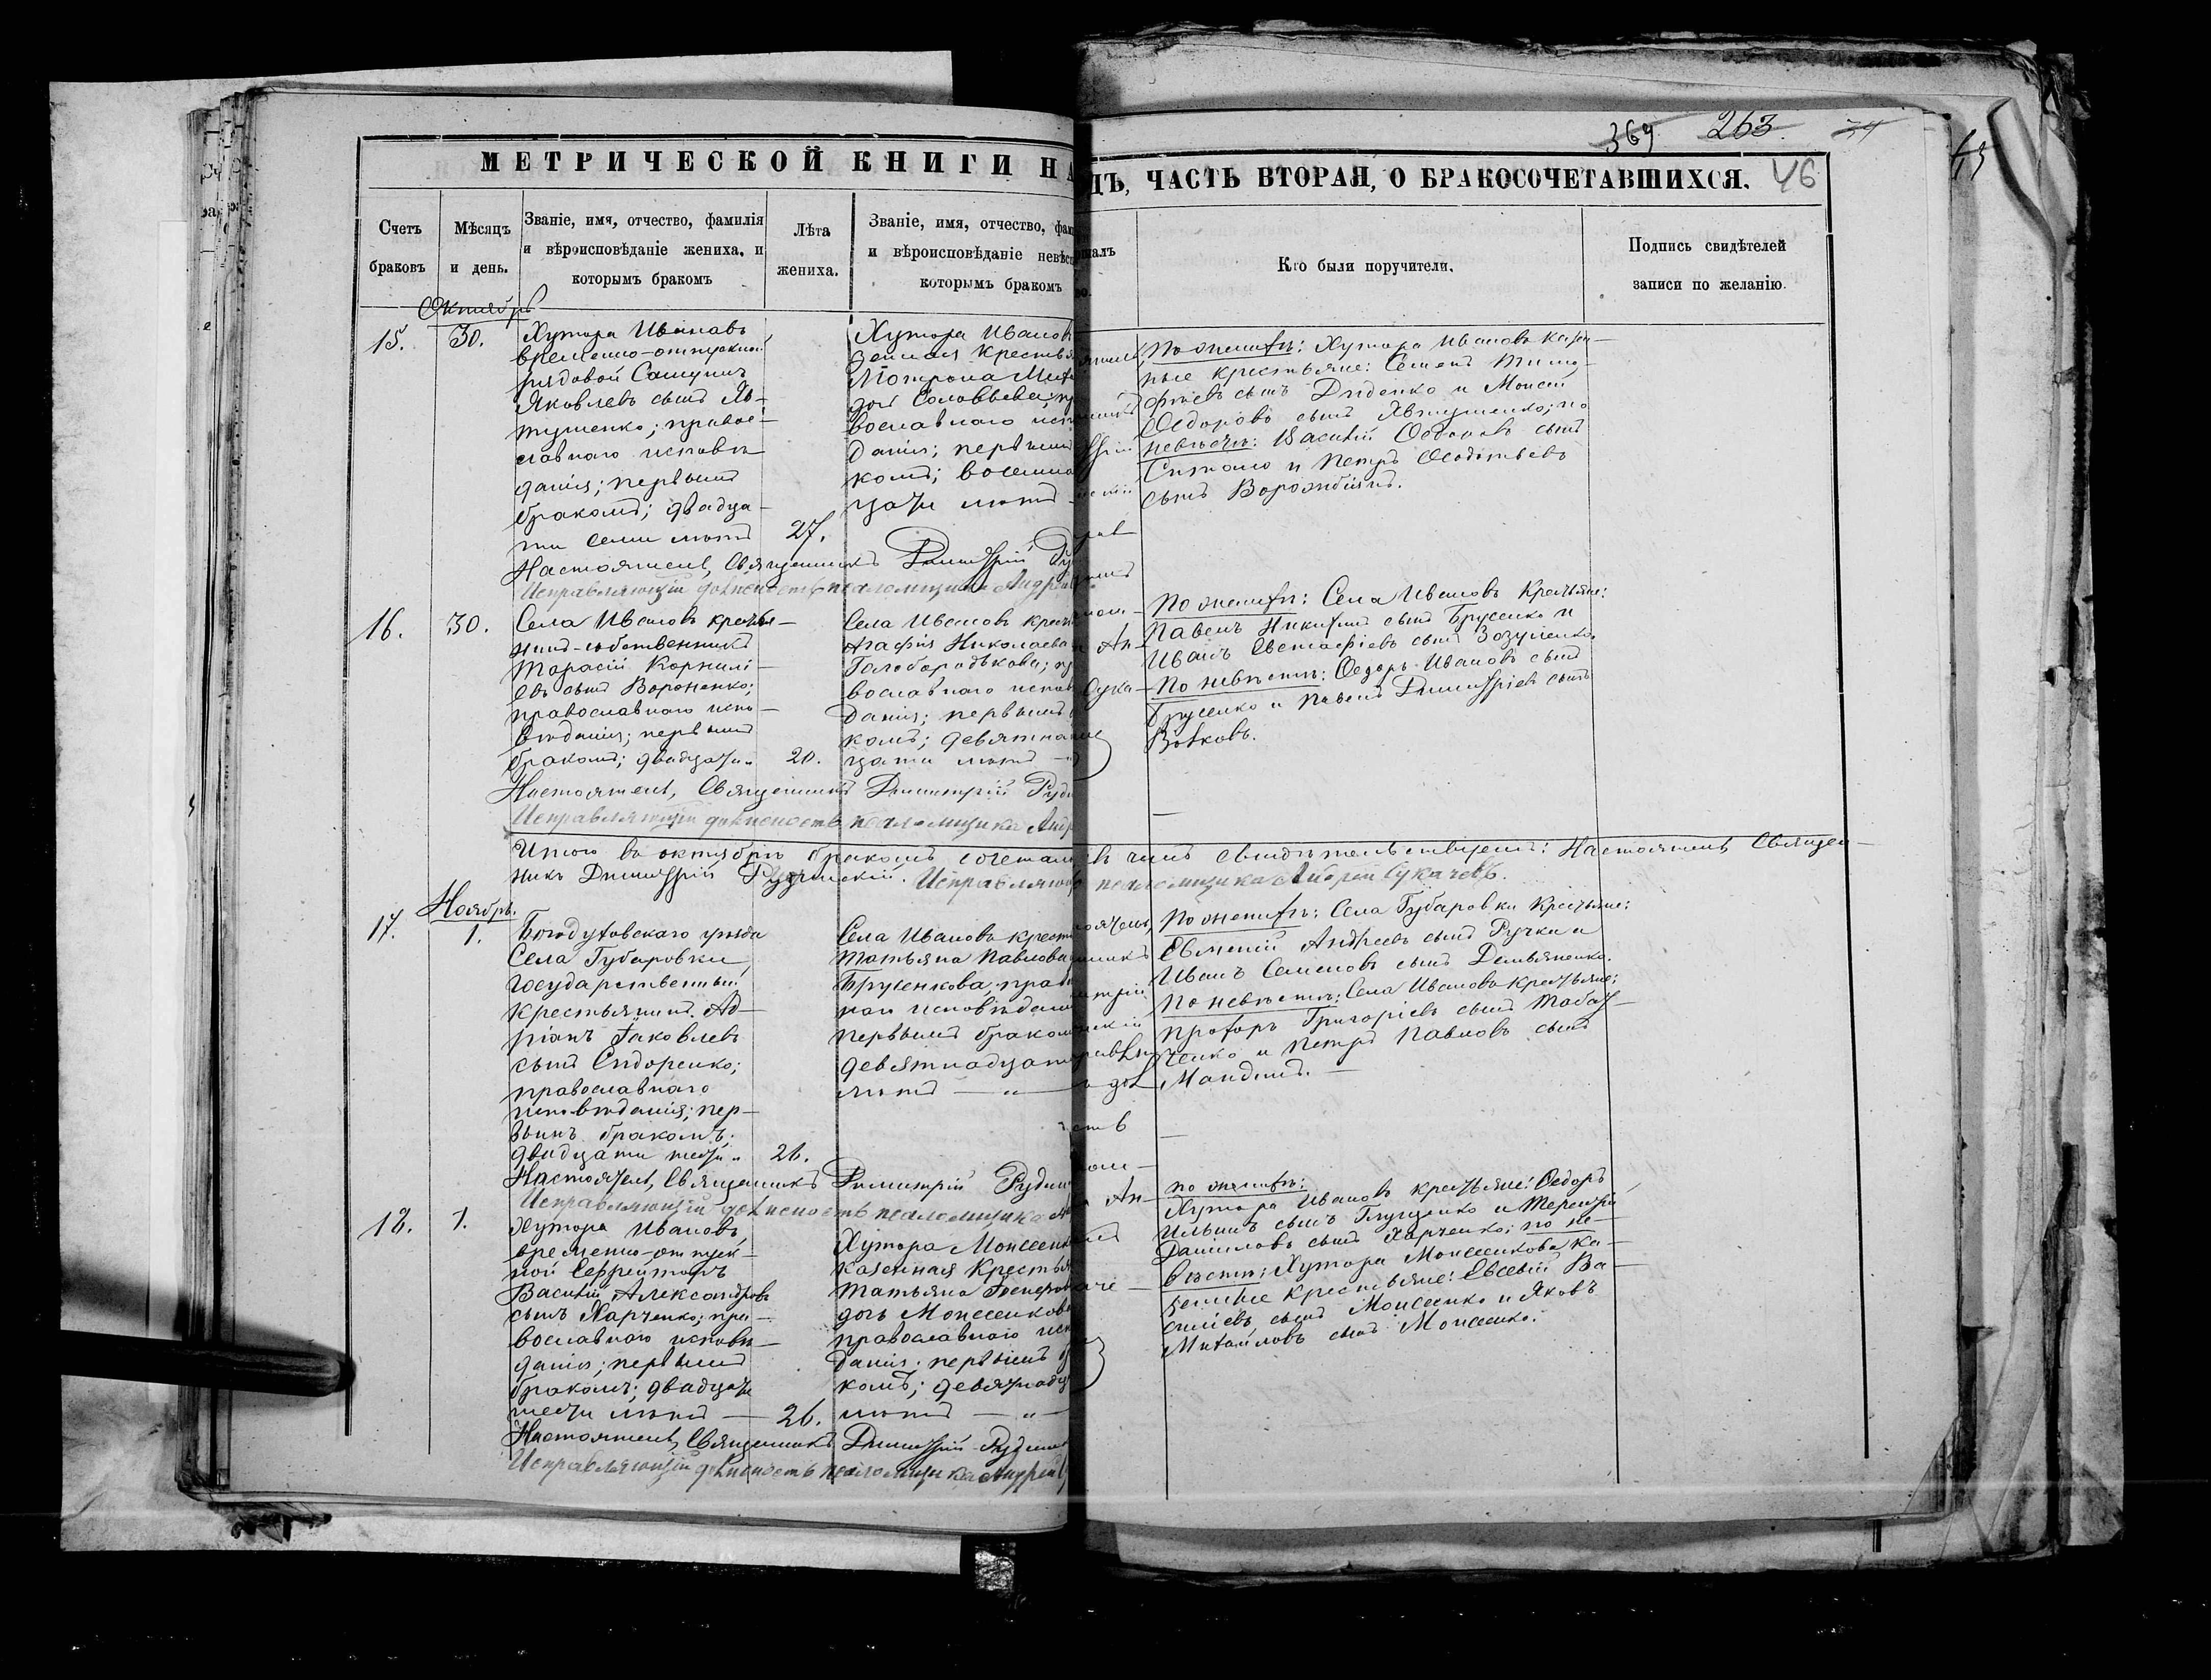 369 263. 34
45
МЕТРИЧЕСКОЙ КНИГИ НА
ДЪ, ЧАСТЬ ВТОРАЯ, О БРАКОСОЧЕТАВШИХСЯ. 46
Счетъ браковъ
Мѣсяцъ и день.
Званіе, имя, отчество, фамилія
и вѣроисповѣданіе жениха, и
которымъ бракомъ
Лѣта
жениха.
Званіе, имя, отчество, фам
и вѣроисповѣданіе невѣс
которымъ бракомъ
Кто были поручители.
Подпись свидѣтелей
записи по желанію.
Октябрь
15. 30.
Хутора Иванова
временно-отпускной
рядовой Самуилъ
Яковлевъ сынъ Яв-
тушенко; правос-
лавнаго исповѣ
данія; первымъ
бракомъ; двадца-
ти семи лѣтъ 27.
Хутора Иванов
Матрона
Соловьева; пр
вославнаго исп
данія; первымъ
комъ; восемна
цати лѣтъ
По женихѣ: Хутора Иванова казен-
ные крестьяне: Семенъ Тимо-
фѣевъ сынъ Диденко и Моисей
Ѳедоровъ сынъ Явтушенко; по
невѣстѣ: Василій сынъ
и Петръ
сынъ
Настоятель, Священникъ Димитрій Ру
Исправляющій должность псаломщика Андрей
16. 30.
Села Ивановъ кресть-
нинъ-собственникъ
Тарасій Корнилі-
евъ сынъ Вороненко;
православнаго испо-
вѣданія; первымъ
бракомъ; двадцати 20.
Села Ивановъ крес
Агафія Николаева
Голобородькова; пр
вославнаго испов
данія; первымъ
комъ; девятна
цати лѣтъ
По женихѣ: Села Ивановъ крестьяне:
Павелъ Никитинъ сынъ Брусенко и
Иванъ Евстафіевъ сынъ Зозуленко
По невѣстѣ: Ѳедоръ Ивановъ сынъ
Брусенко и Павелъ Димитріевъ сынъ
Волковъ.
Настоятель, Священникъ Димитрій Руди
Исправляющій должность псаломщика Андр
Итого въ октябрѣ бракомъ сочетал
въ чемъ свидѣтельствуемъ: Настоятель, Священ-
никъ Димитрій Рудинскій. Исправляющ
псаломщика Андрей Сукачевъ.
Ноябрь.
17. 1.
Богодуховскаго уѣзда
Села Губаровки,
Государственный
крестьянинъ Ад-
ріанъ Іаковлевъ
сынъ Сидоренко;
православнаго
исповѣданія; пер-
вымъ бракомъ;
двадцати шести 26.
Села Ивановъ крест
Татьяна Павлова
Брусенкова; прав
наго исповѣдан
первымъ бракомъ
девятнадцати
лѣтъ — „ —
По женихѣ: Села Губаровки крестьяне:
Евменій Андреевъ сынъ Ручка и
Иванъ Семеновъ сынъ Демьяненко.
По невѣстѣ: Села Иванова крестьяне:
Прохоръ Григоріевъ сынъ
и Петръ Павловъ сынъ
Настоятель, Священникъ Димитрій Рудин
Исправляющій должность псаломщика
18. 1.
Хутора Ивановъ
временно-отпуск-
ной Ефрейторъ
Василій Александровъ
сынъ Харченко; пра-
вославнаго исповѣ-
данія; первымъ
бракомъ; двадцати
шести лѣтъ — 26.
Хутора Моисеенк
казенная крестья
Татьяна
дочь Моисеенкова
православнаго исп
данія; первымъ
комъ; девятнадц
лѣтъ — „ —
По женихѣ:
Хутора Ивановъ крестьяне: Ѳедоръ
Ильинъ сынъ Глущенко и Терентій
Даниловъ сынъ Харченко; по не-
вѣстѣ: Хутора Моисеенкова ка-
зенные крестьяне: Евсевій Ва-
сильевъ сынъ Моисеенко и Яковъ
Михайловъ сынъ Моисеенко.
Настоятель, Священникъ Димитрій Рудин
Исправляющій должность псаломщика Андрей